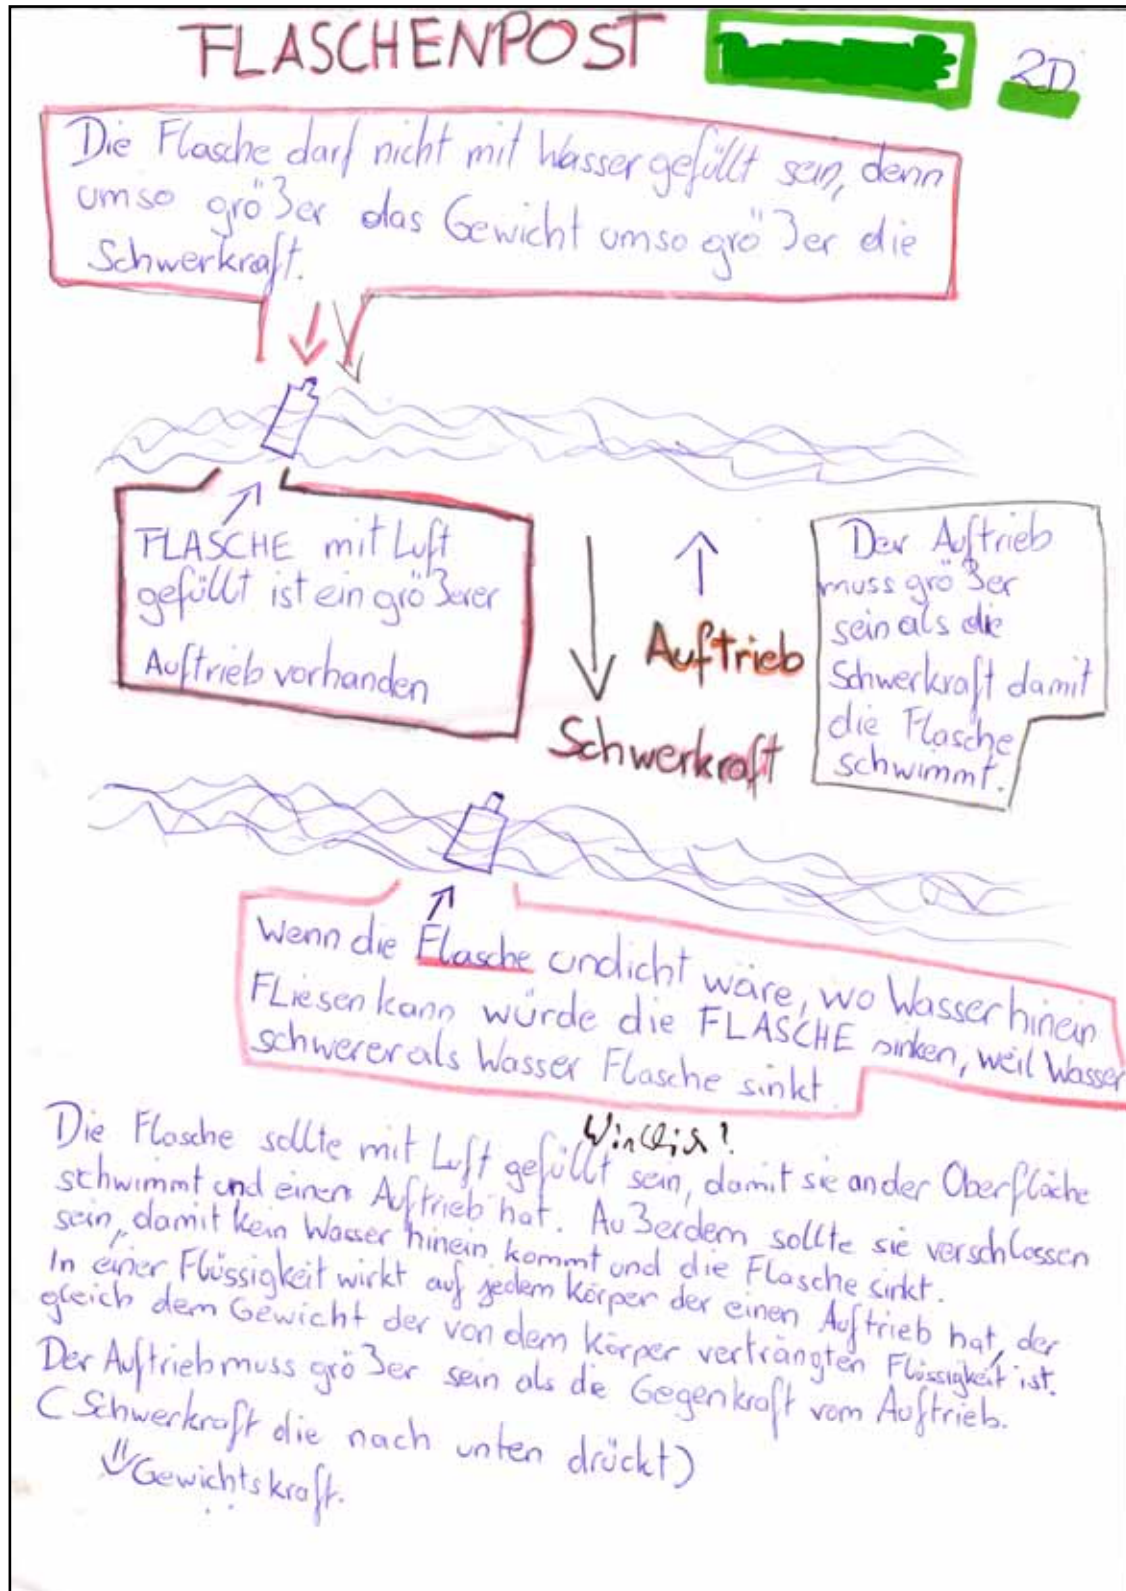 FLASCHENPOST
2D
Die Flasche darf nicht mit Wasser gefüllt sein, denn
umso größer das Gewicht umso größer die
Schwerkraft.
FLASCHE mit Luft
gefüllt ist ein größerer
Auftrieb vorhanden
Auftrieb
Schwerkraft
Der Auftrieb
muss größer
sein als die
Schwerkraft damit
die Flasche
schwimmt.
Wenn die Flasche undicht wäre, wo Wasser hinein
FLiesen kann würde die FLASCHE sinken, weil Wasser
schwerer als Wasser Flasche sinkt.
Wirklich?
Die Flasche sollte mit Luft gefüllt sein, damit sie an der Oberfläche
schwimmt und einen Auftrieb hat. Außerdem sollte sie verschlossen
sein, damit kein Wasser hinein kommt und die Flasche sinkt.
In einer Flüssigkeit wirkt auf jedem Körper der einen Auftrieb hat, der
gleich dem Gewicht der von dem Körper verträngten Flüssigkeit ist.
Der Auftrieb muss größer sein als die Gegenkraft vom Auftrieb.
(Schwerkraft die nach unten drückt)
Gewichtskraft.